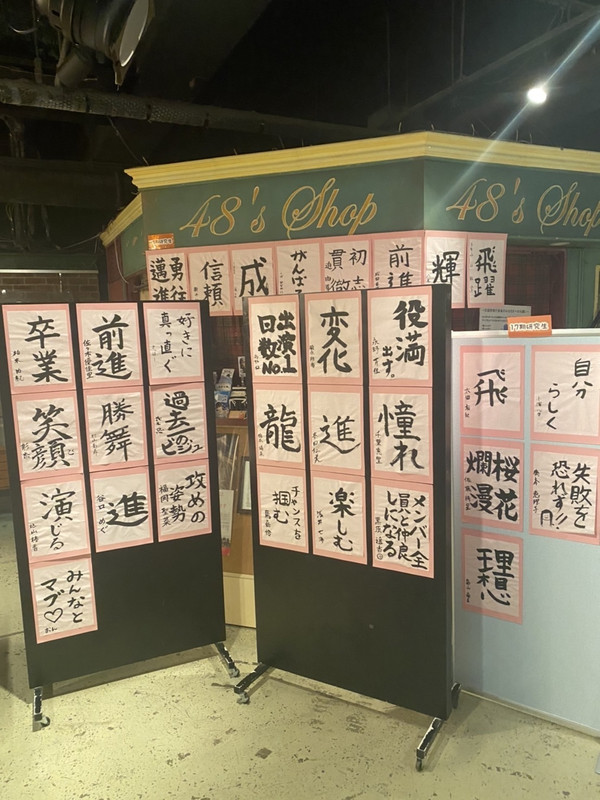 48's Shop
48's Shop
勇往
邁進
信頼
成
がんば
初志
貫徹
前進
輝
飛躍
卒業
前進
佐々木優佳里
好きに
真っ直ぐ
笑顔
勝舞
過去一の
ビジュ
演じる
進
谷口 めぐ
攻めの
姿勢
福岡 聖菜
みんなと
マブ♡
出演上
回数No.1
変化
役満
出す。
龍
進
憧れ
チャンスを
掴む
楽しむ
メンバー全
員と仲良
しになる
17期研究生
飛
自分
らしく
桜花
爛漫
失敗を
恐れず!!
理想